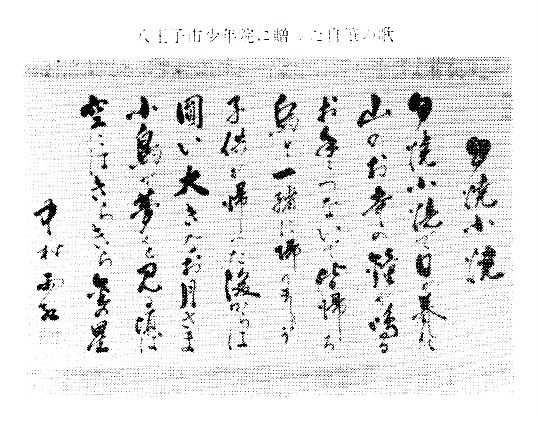 八王子市少年院に贈った自筆の歌
夕焼小焼
夕焼小焼で日が暮れて
山のお寺の鐘が鳴る
お手々つないで皆帰ろ
烏と一緒に帰りましょう
子供が帰った後からは
圓い大きなお月さま
小鳥が夢を見る頃は
空にはきらきら金の星
中村雨紅